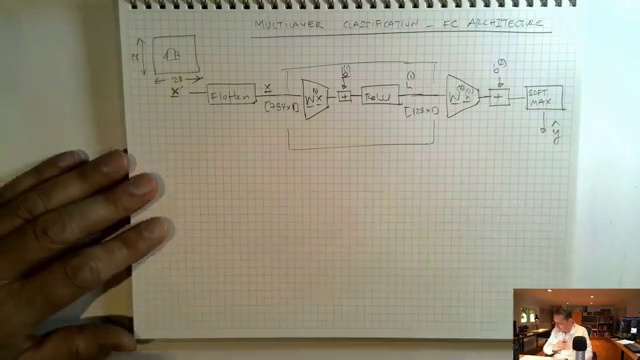 MULTILAYER CLASSIFICATION - FC ARCHITECTURE
28
28
x'
Flatten
x
[784x1]
W⁽¹⁾x
b⁽¹⁾
+
ReLU
h⁽¹⁾
[128x1]
W⁽²⁾h⁽¹⁾
b⁽²⁾
+
SOFT
MAX
ŷ